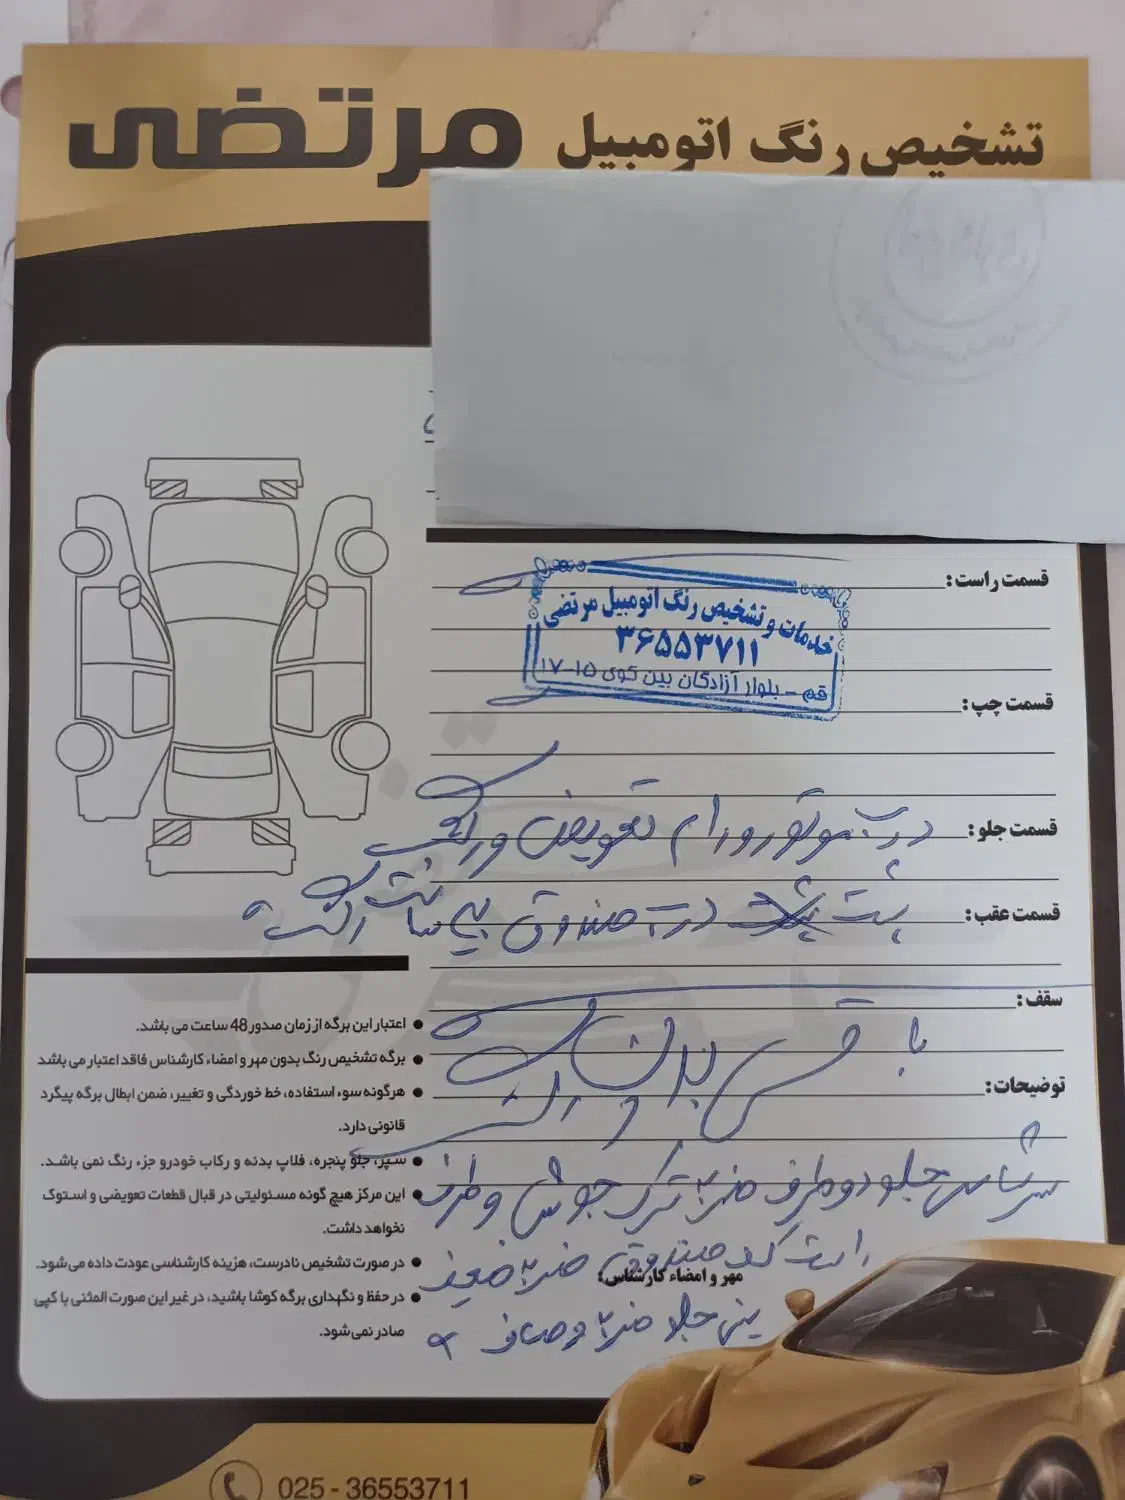 تشخیص رنگ اتومبیل مرتضی
قسمت راست:
خدمات و تشخیص رنگ اتومبیل مرتضی
۳۶۵۵۳۷۱۱
قم - بلوار آزادگان بین کوی ۱۵-۱۷
قسمت چپ:
قسمت جلو: درب موتور و رام تعویض و رنگ
قسمت عقب: پشت درب صندوق رنگ
سقف:
با
توضیحات:
سرشاسی جلو دو طرف ضربه ترک جوش و طرف
راست کف صندوق ضربه ضعیف
سینی جلو ضربه و صافی
مهر و امضاء کارشناس:
● اعتبار این برگه از زمان صدور 48 ساعت می باشد.
● برگه تشخیص رنگ بدون مهر و امضاء کارشناس فاقد اعتبار می باشد
● هرگونه سوء استفاده، خط خوردگی و تغییر، ضمن ابطال برگه پیگرد
قانونی دارد.
● سپر، جلو پنجره، فلاپ بدنه و رکاب خودرو جزء رنگ نمی باشد.
● این مرکز هیچ گونه مسئولیتی در قبال قطعات تعویضی و استوک
نخواهد داشت.
● در صورت تشخیص نادرست، هزینه کارشناسی عودت داده می شود.
● در حفظ و نگهداری برگه کوشا باشید، در غیر این صورت المثنی یا کپی
صادر نمی شود.
025 - 36553711